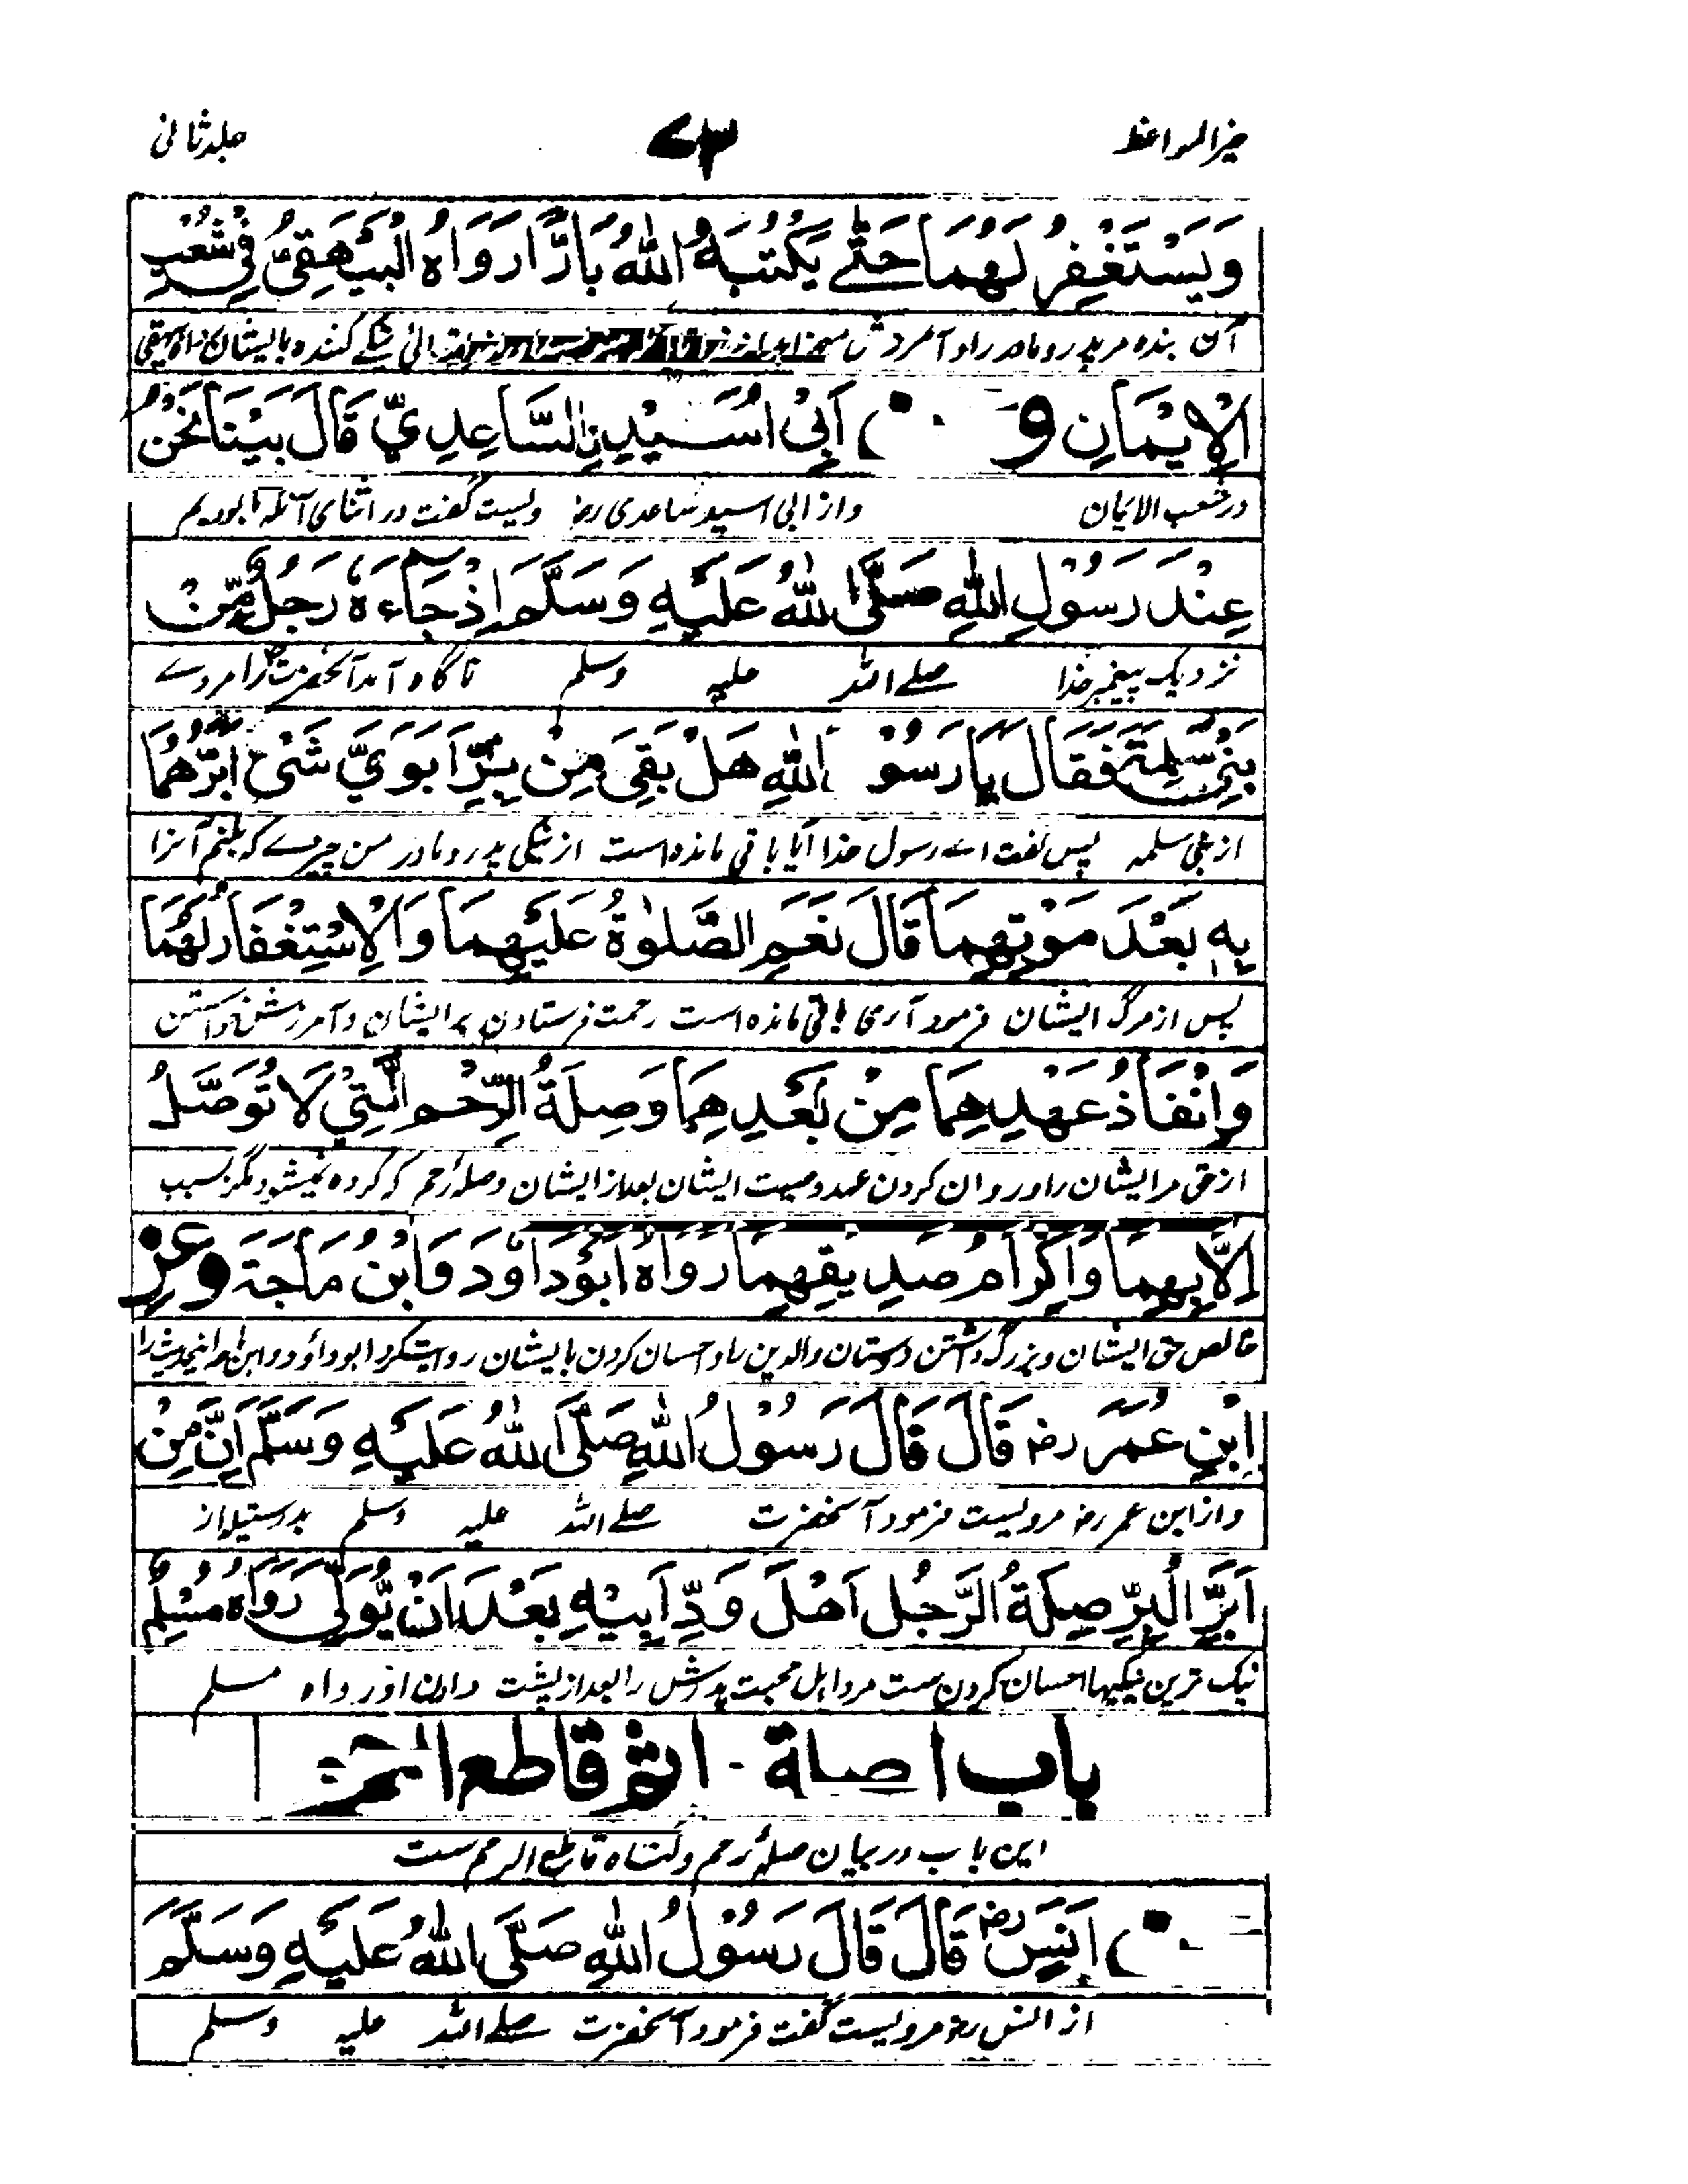 خیر المواعظ
۷۳
جلد ثانی
وَيَسْتَغْفِرُ لَهُمَا حَتّٰى يَكْتُبَهُ اللّٰهُ بَارًّا رَوَاهُ الْبَيْهَقِيُّ فِي شُعَبِ
آن بنده مر پدر و مادر را و آمرزش میخواهد نیکی کننده بایشان بیهقی
الْاِيْمَانِ و اَبِيْ اُسَيْدِ نِالسَّاعِدِيِّ قَالَ بَيْنَا نَحْنُ
در شعب الایمان و از ابی اسید ساعدی رضـ ویست گفت در اثنای آنکه ما بودیم
عِنْدَ رَسُوْلِ اللّٰهِ صَلَّى اللّٰهُ عَلَيْهِ وَسَلَّمَ اِذْ جَاءَهٗ رَجُلٌ مِّنْ
نزدیک پیغمبر خدا صلے اللہ علیہ وسلم ناگاه آمد آنحضرت را مردے
بَنِيْ سَلِمَةَ فَقَالَ يَا رَسُوْ اللّٰهِ هَلْ بَقِيَ مِنْ بِرِّ اَبَوَيَّ شَيْءٌ اَبَرُّهُمَا
از بنی سلمہ پس گفت اے رسول خدا آیا باقی مانده است از نیکی پدر و مادر من چیزے که بکنم آنرا
بِهٖ بَعْدَ مَوْتِهِمَا قَالَ نَعَمِ الصَّلٰوةُ عَلَيْهِمَا وَالْاِسْتِغْفَارُ لَهُمَا
پس از مرگ ایشان فرمود آری باقی مانده است رحمت فرستادن بر ایشان و آمرزش خواستن
وَاِنْفَاذُ عَهْدِهِمَا مِنْ بَعْدِهِمَا وَصِلَةُ الرَّحْمِ الَّتِيْ لَا تُوْصَلُ
از حق مر ایشان را و روان کردن عهد وصیت ایشان بعد از ایشان و صلۀ رحم که کرده نمیشود مگر بسبب
اِلَّا بِهِمَا وَاِكْرَامُ صَدِيْقِهِمَا رَوَاهُ اَبُوْدَاوٗدَ وَابْنُ مَاجَةَ وعن
خالص حق ایشان و بزرگ داشتن دوستان والدین را و احسان کردن بایشان روایت کرد ابوداؤد و ابن ماجه اینحدیث را
اِبْنِ عُمَرَ رضـ قَالَ قَالَ رَسُوْلُ اللّٰهِ صَلَّى اللّٰهُ عَلَيْهِ وَسَلَّمَ اِنَّ مِنْ
و از ابن عمر رضـ مرویست فرمود آنحضرت صلے اللہ علیہ وسلم بدرستیکه از
اَبَرِّ الْبِرِّ صِلَةُ الرَّجُلِ اَهْلَ وَدِّ اَبِيْهِ بَعْدَ اَنْ يُّوَلِّيَ رَوَاهُ مُسْلِمٌ
نیک ترین نیکیها احسان کردن ست مرد اہل محبت پدرش را بعد از پشت دادن او رواه مسلم
باب ا صلة اثم قاطع الرحم
این باب در بیان صلۀ رحم و گناه قاطع الرحم ست
اَنَسٍ رضـ قَالَ قَالَ رَسُوْلُ اللّٰهِ صَلَّى اللّٰهُ عَلَيْهِ وَسَلَّمَ
از انس رضـ مرویست گفت فرمود آنحضرت صلے اللہ علیہ وسلم